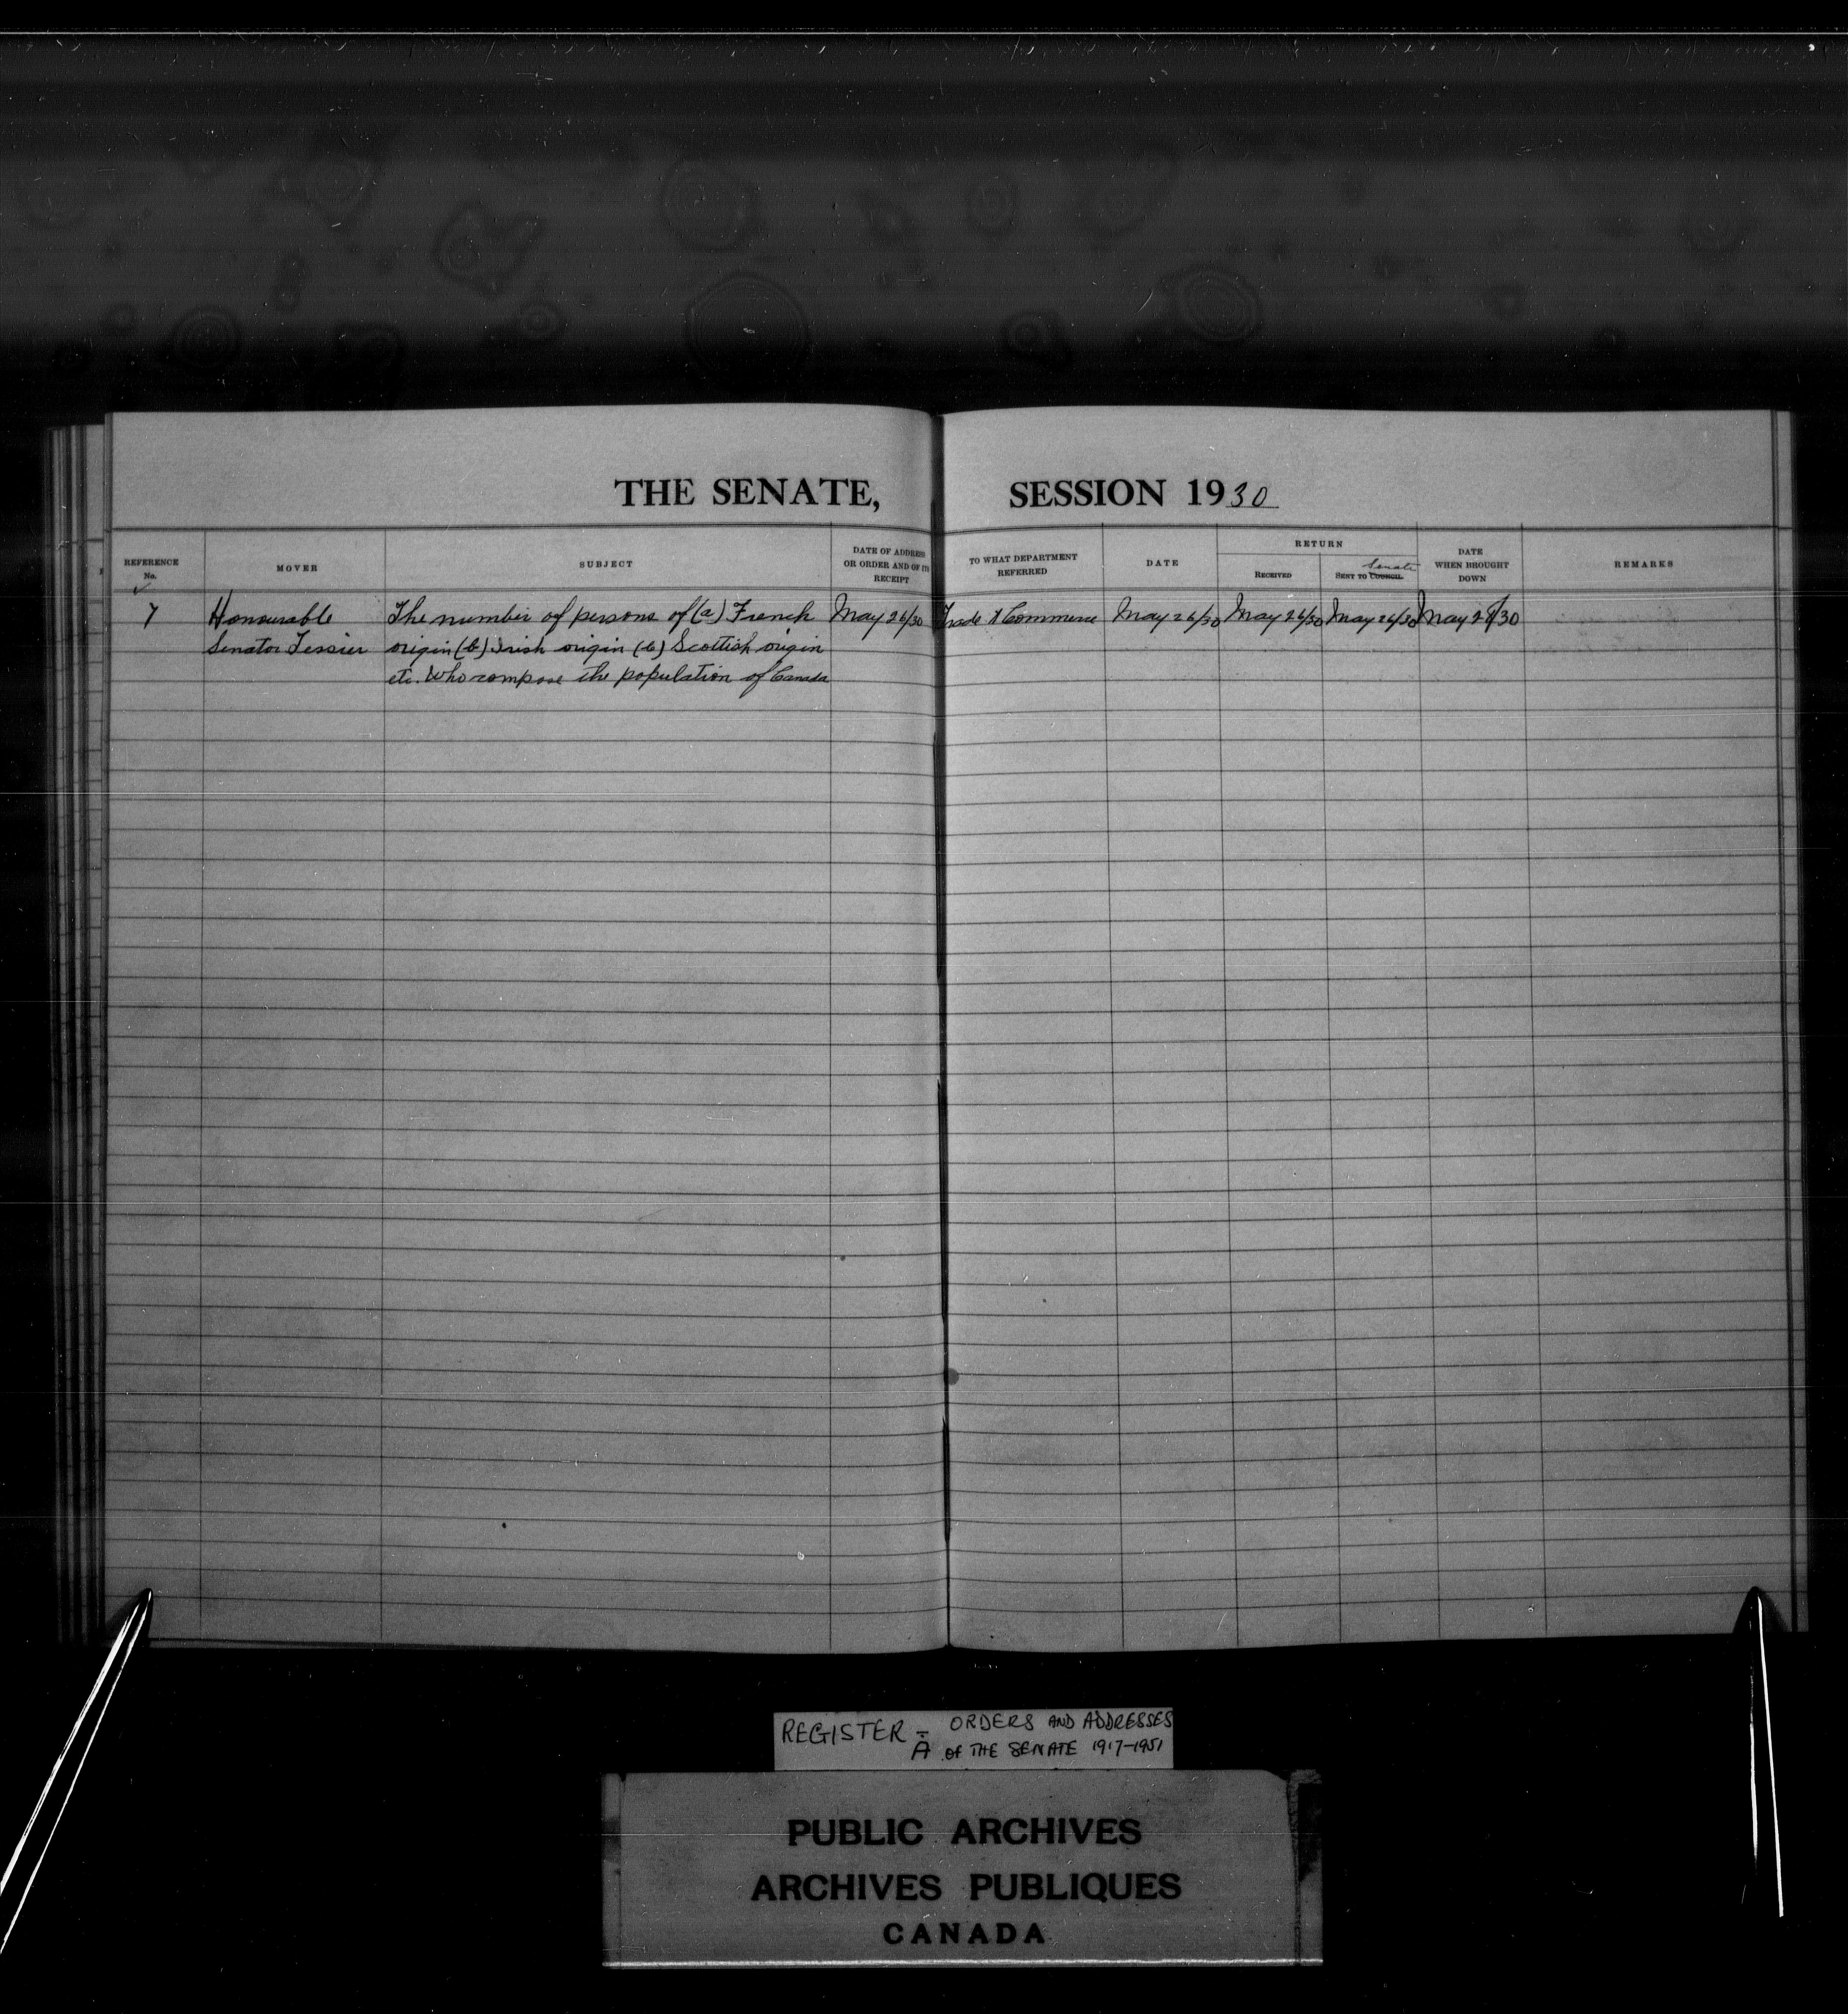 THE SENATE, SESSION 1930
REFERENCE No. MOVER SUBJECT DATE OF ADDRESS OR ORDER AND OF ITS RECEIPT TO WHAT DEPARTMENT REFERRED DATE RETURN RECEIVED SENT TO COUNCIL Senate DATE WHEN BROUGHT DOWN REMARKS
7 Honourable The number of persons of (a) French May 26/30 Trade & Commerce May 26/30 May 26/30 May 26/30 May 27/30
Senator Tessier origin (b) Irish origin (c) Scottish origin
etc. Who compose the population of Canada
REGISTER - ORDERS AND ADDRESSES
A OF THE SENATE 1917-1951
PUBLIC ARCHIVES
ARCHIVES PUBLIQUES
CANADA